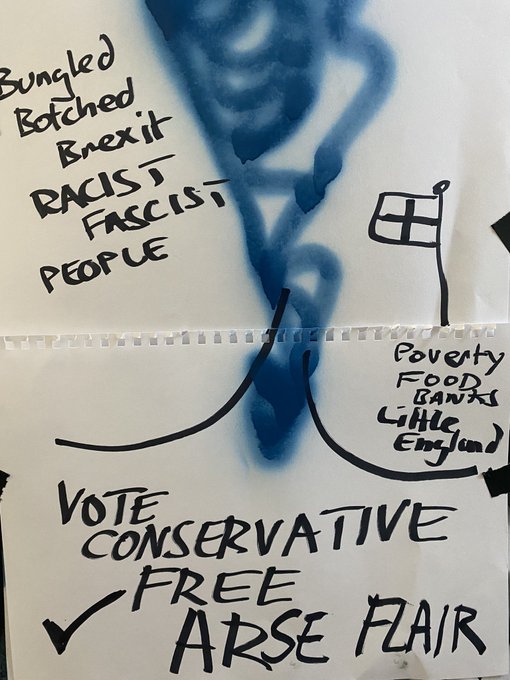 Bungled
Botched
Brexit
RACIST
FASCIST
PEOPLE
Poverty
FOOD
BANKS
Little
England
VOTE
CONSERVATIVE
FREE
ARSE FLAIR